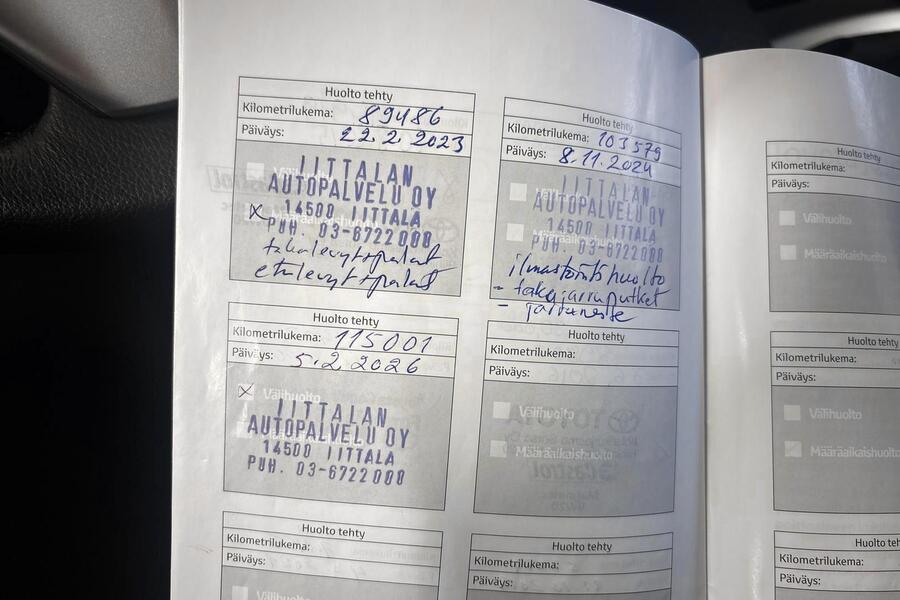 Huolto tehty
Kilometrilukema: 89486
Päiväys: 22.2.2023
IITTALAN
AUTOPALVELU OY
14500 IITTALA
PUH. 03-6722000
takalevyt+palat
etulevyt+palat
Huolto tehty
Kilometrilukema: 103579
Päiväys: 8.11.2024
IITTALAN
AUTOPALVELU OY
14500 IITTALA
PUH. 03-6722000
ilmastointihuolto
- takajarruputket
- jarruneste
Huolto tehty
Kilometrilukema:
Päiväys:
Välihuolto
Määräaikaishuolto
Huolto tehty
Kilometrilukema: 115001
Päiväys: 5.2.2026
x Välihuolto
IITTALAN
AUTOPALVELU OY
14500 IITTALA
PUH. 03-6722000
Huolto tehty
Kilometrilukema:
Päiväys:
Välihuolto
Määräaikaishuolto
Huolto
Kilometrilukema:
Päiväys:
Välihuolto
Määräaikaishuolto
Huolto tehty
Kilometrilukema:
Päiväys:
Välihuolto
Huolto tehty
Kilometrilukema:
Päiväys:
Huolto te
Kilometrilukema:
Päiväys: